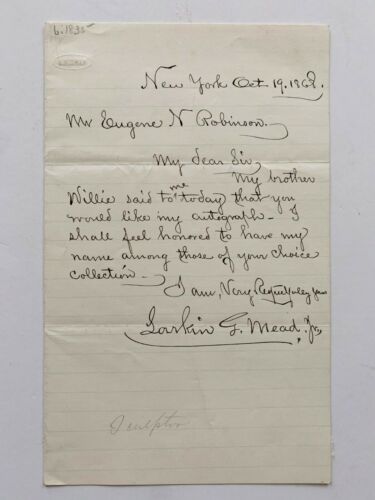 b. 1835
New York Oct 19, 1868.
Mr Eugene N Robinson.
My dear Sir,
My brother
Willie said to me today that you
would like my autograph - I
shall feel honored to have my
name among those of your choice
collection -
I am, Very Respectfuley yours
Larkin G. Mead, Jr,
Sculptor